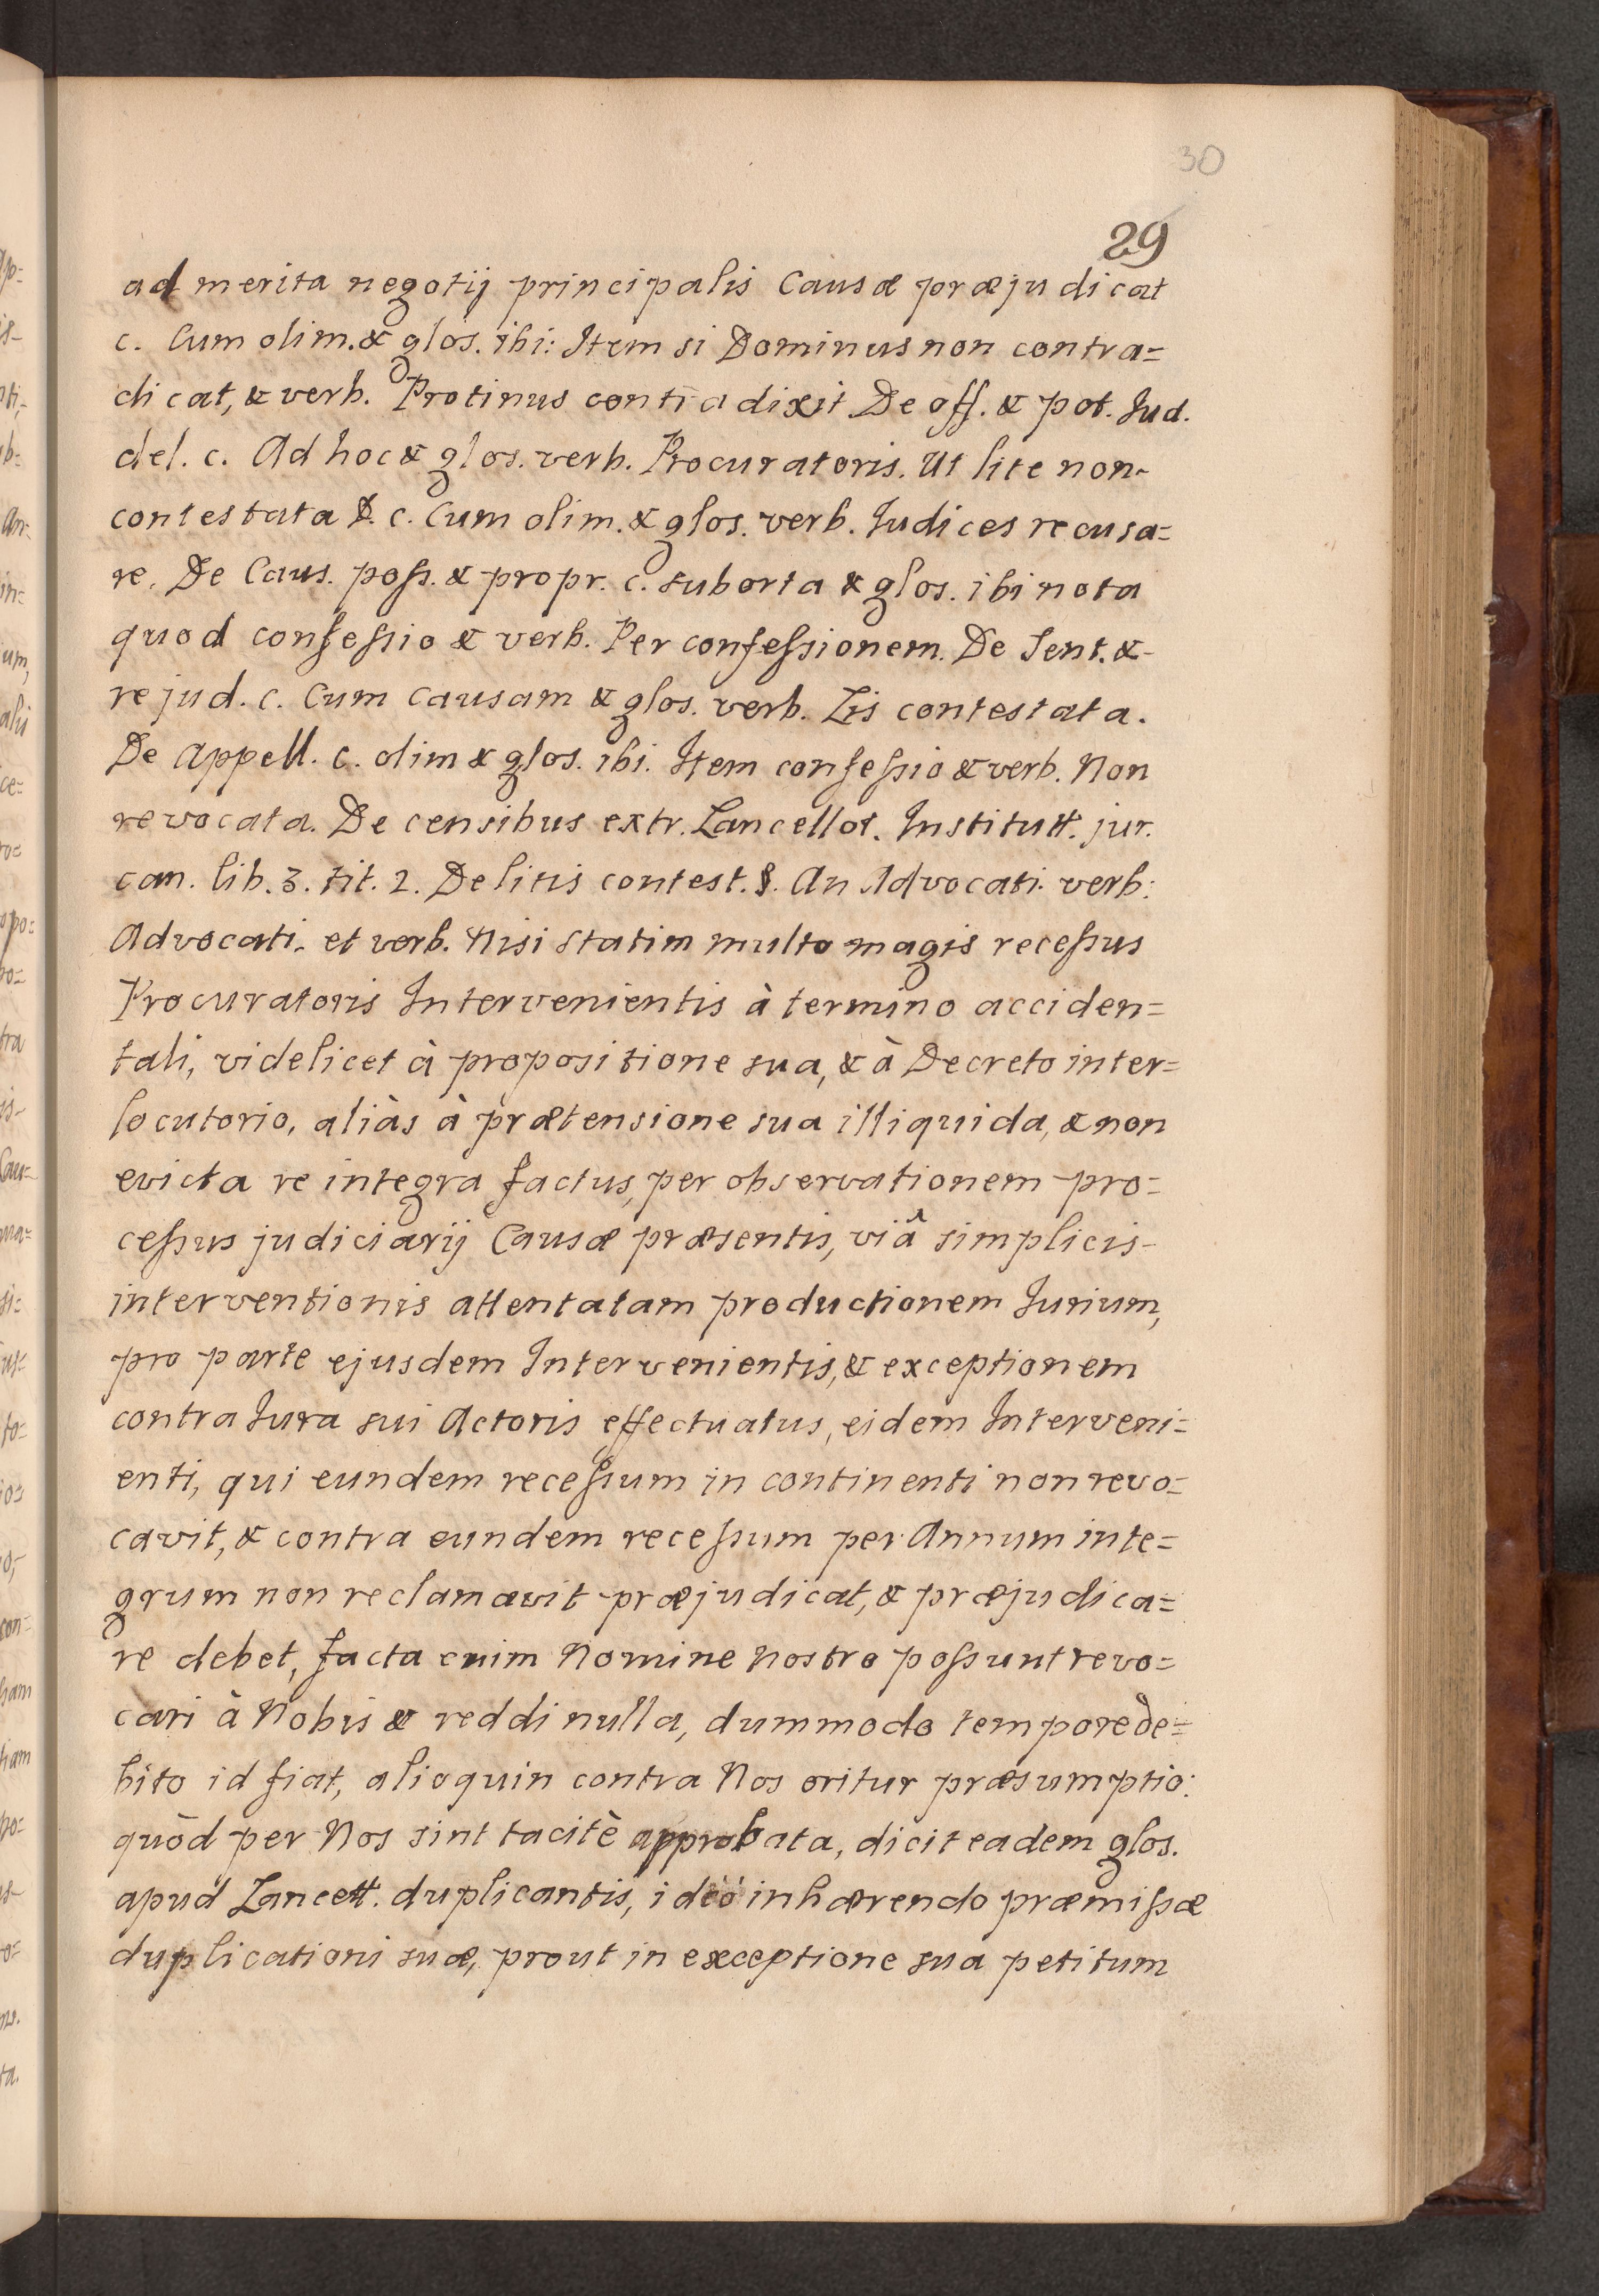 30
29
ad merita negotij principalis Causæ præjudicat
c. Cum olim. & glos. ibi: Item si Dominus non contra=
dicat, & verb. Protinus contradixit De off. & pot. Jud.
del. c. Ad hoc & glos. verb. Procuratoris. Ut lite non-
contestata D. c. Cum olim. & glos. verb. Judices recusa=
re. De Caus. poss. & propr. c. suborta & glos. ibi nota
quod confessio & verb. Per confessionem. De Sent. &-
re jud. c. Cum causam & glos. verb. Lis contestata.
De Appell. c. olim & glos. ibi. Item confessio & verb. Non
revocata. De censibus extr. Lancellot. Institutt. jur.
can. lib. 3. tit. 2. De litis contest. §. An Advocati. verb:
Advocati. et verb. Nisi statim multo magis recessus
Procuratoris Intervenientis à termino acciden=
tali, videlicet à propositione sua, & à Decreto inter=
locutorio, aliàs à prætensione sua illiquida, & non
evicta re integra factus, per observationem pro=
cessus judiciarij Causæ præsentis, viâ simplicis-
interventionis attentatam productionem Jurium,
pro parte ejusdem Intervenientis, & exceptionem
contra Jura sui Actoris effectuatus, eidem Interveni=
enti, qui eundem recessum in continenti non revo=
cavit, & contra eundem recessum per Annum inte=
grum non reclamavit præjudicat, & præjudica=
re debet, facta enim Nomine Nostro possunt revo=
cari à Nobis & reddi nulla, dummodo tempore de=
bito id fiat, alioquin contra Nos oritur præsumptio:
quòd per Nos sint tacitè approbata, dicit eadem glos.
apud Lancett. duplicantis, ideó inhærendo præmissæ
duplicationi suæ, prout in exceptione sua petitum